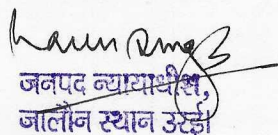 जनपद न्यायाधीश,
जालौन स्थान उरई।